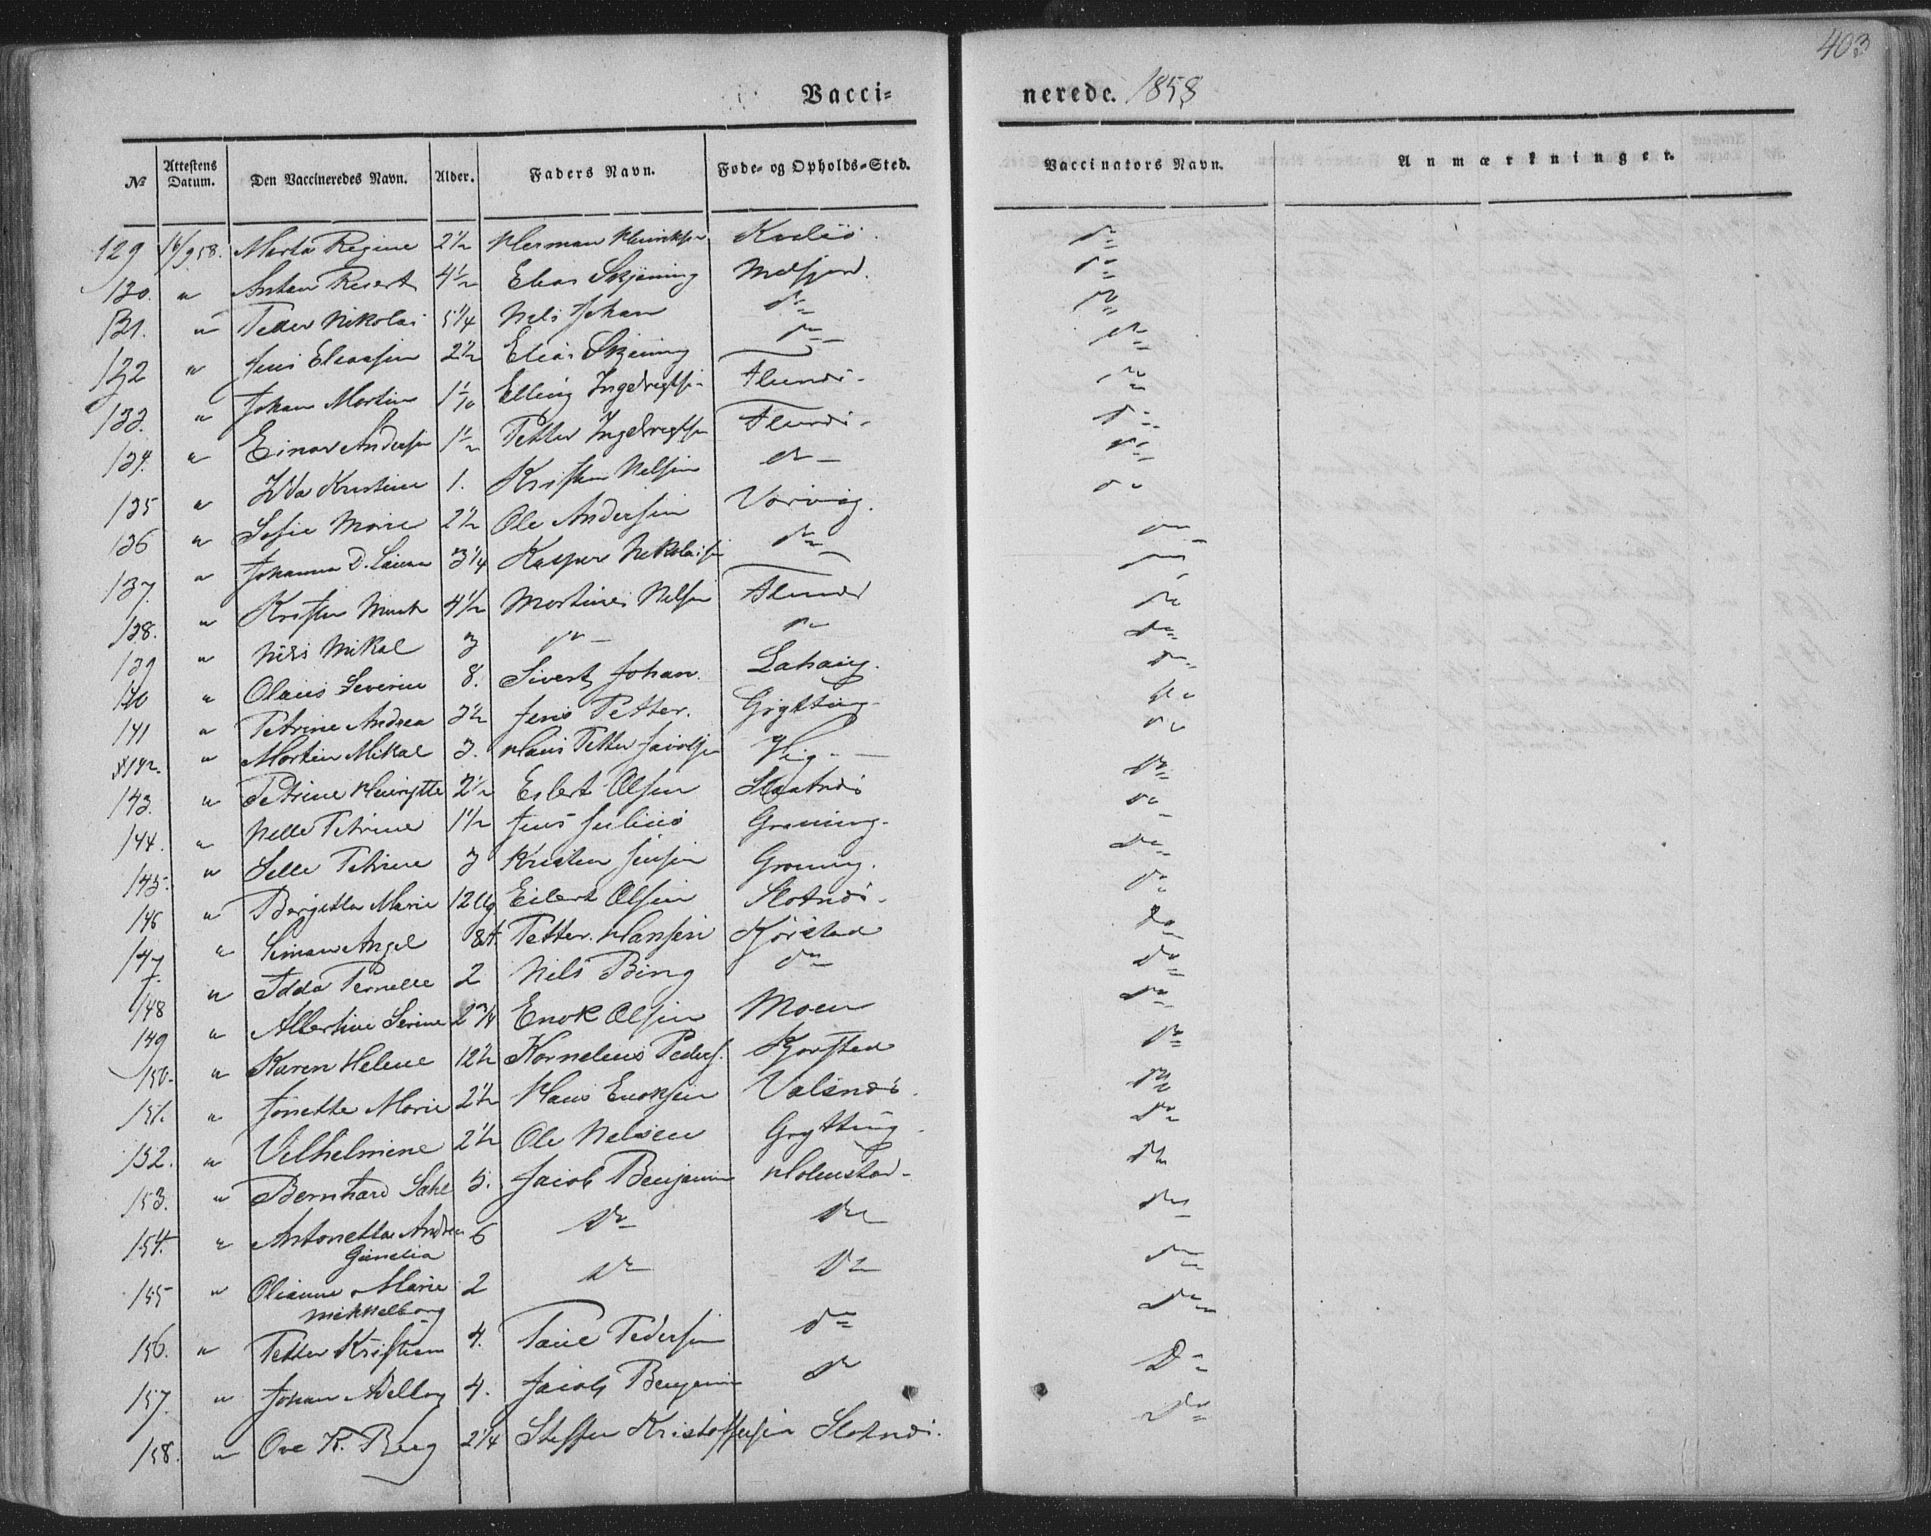 403
Vaccinerede. 1858
№ Attestens Datum. Den Vaccineredes Navn. Alder. Faders Navn. Føde- og Opholds-Sted. Vaccinators Navn. Anmærkninger.
129 16/9 58. Marta Regine 2½ Herman Do
130. " Anton 4½ Elias Skjäning Do
131. " Peder Nikolai 5¼ Nils Johan Do Do
132 " Jens Eliassen 2½ Elias Skjäning Do Do
133. " Johan Martin 1 1/10 Elling Ingebrigtsn Do
134. " Einar Andersen 1½ Petter Ingebrigtsn Do
135 " Ida Kristine 1. Kristen Nilsen Do Do
136 " Sofie Marie 2½ Ole Andersen Do
137. " Johanna D. 3¼ Kasper Nikolaisn Do Do
138. " Kristen Munk 4½ Martines Nilsen Do
139 " Nils Mikal 3 Do Do Do
140 " Olaus Severin 8. Sivert Johan. Do
141 " Petrine Andrea 3½ Jens Petter. Grytting Do
142. " Martin Mikal 3. Hans Petter Do
143. " Petrine 2½ Eilert Olsen Do
144. " Nelle Petrine 1½ Jens Julius Groning. Do
145. " Selle Petrine 3 Kristen Jensen Groning. Do
146 " Bergitta Marie 12 Ug Eilert Olsen Slotnæs. Do
147 " Angel 8 Petter Hansen Kjørstad Do
148 " Idda Pernelle 2 Nils Bing Do Do
149 " Albertine Serine 2¾ Enok Olsen Moen Do
150. " Karen Helene 12½ Kornelius Peders. Kjorstad Do
151. " Jonette Marie 2½ Hans Enoksen Valsnæs. Do
152. " Vilhelmine 2½ Ole Nelsen Grytting. Do
153. " Bernhard 5. Jacob Benjamin Holmstad. Do
154. " Antonetta Andrea 6 Do Do Do
155 " Olianne Marie 2 Do Do Do
Mikkelborg
156. " Petter Kristian 4. Paul Pedersen Do Do
157. " Johan 4. Jacob Benjamin Do Do
158. " Ove K. Berg 2¼ Steffen Kristoffersen Slotnæs. Do